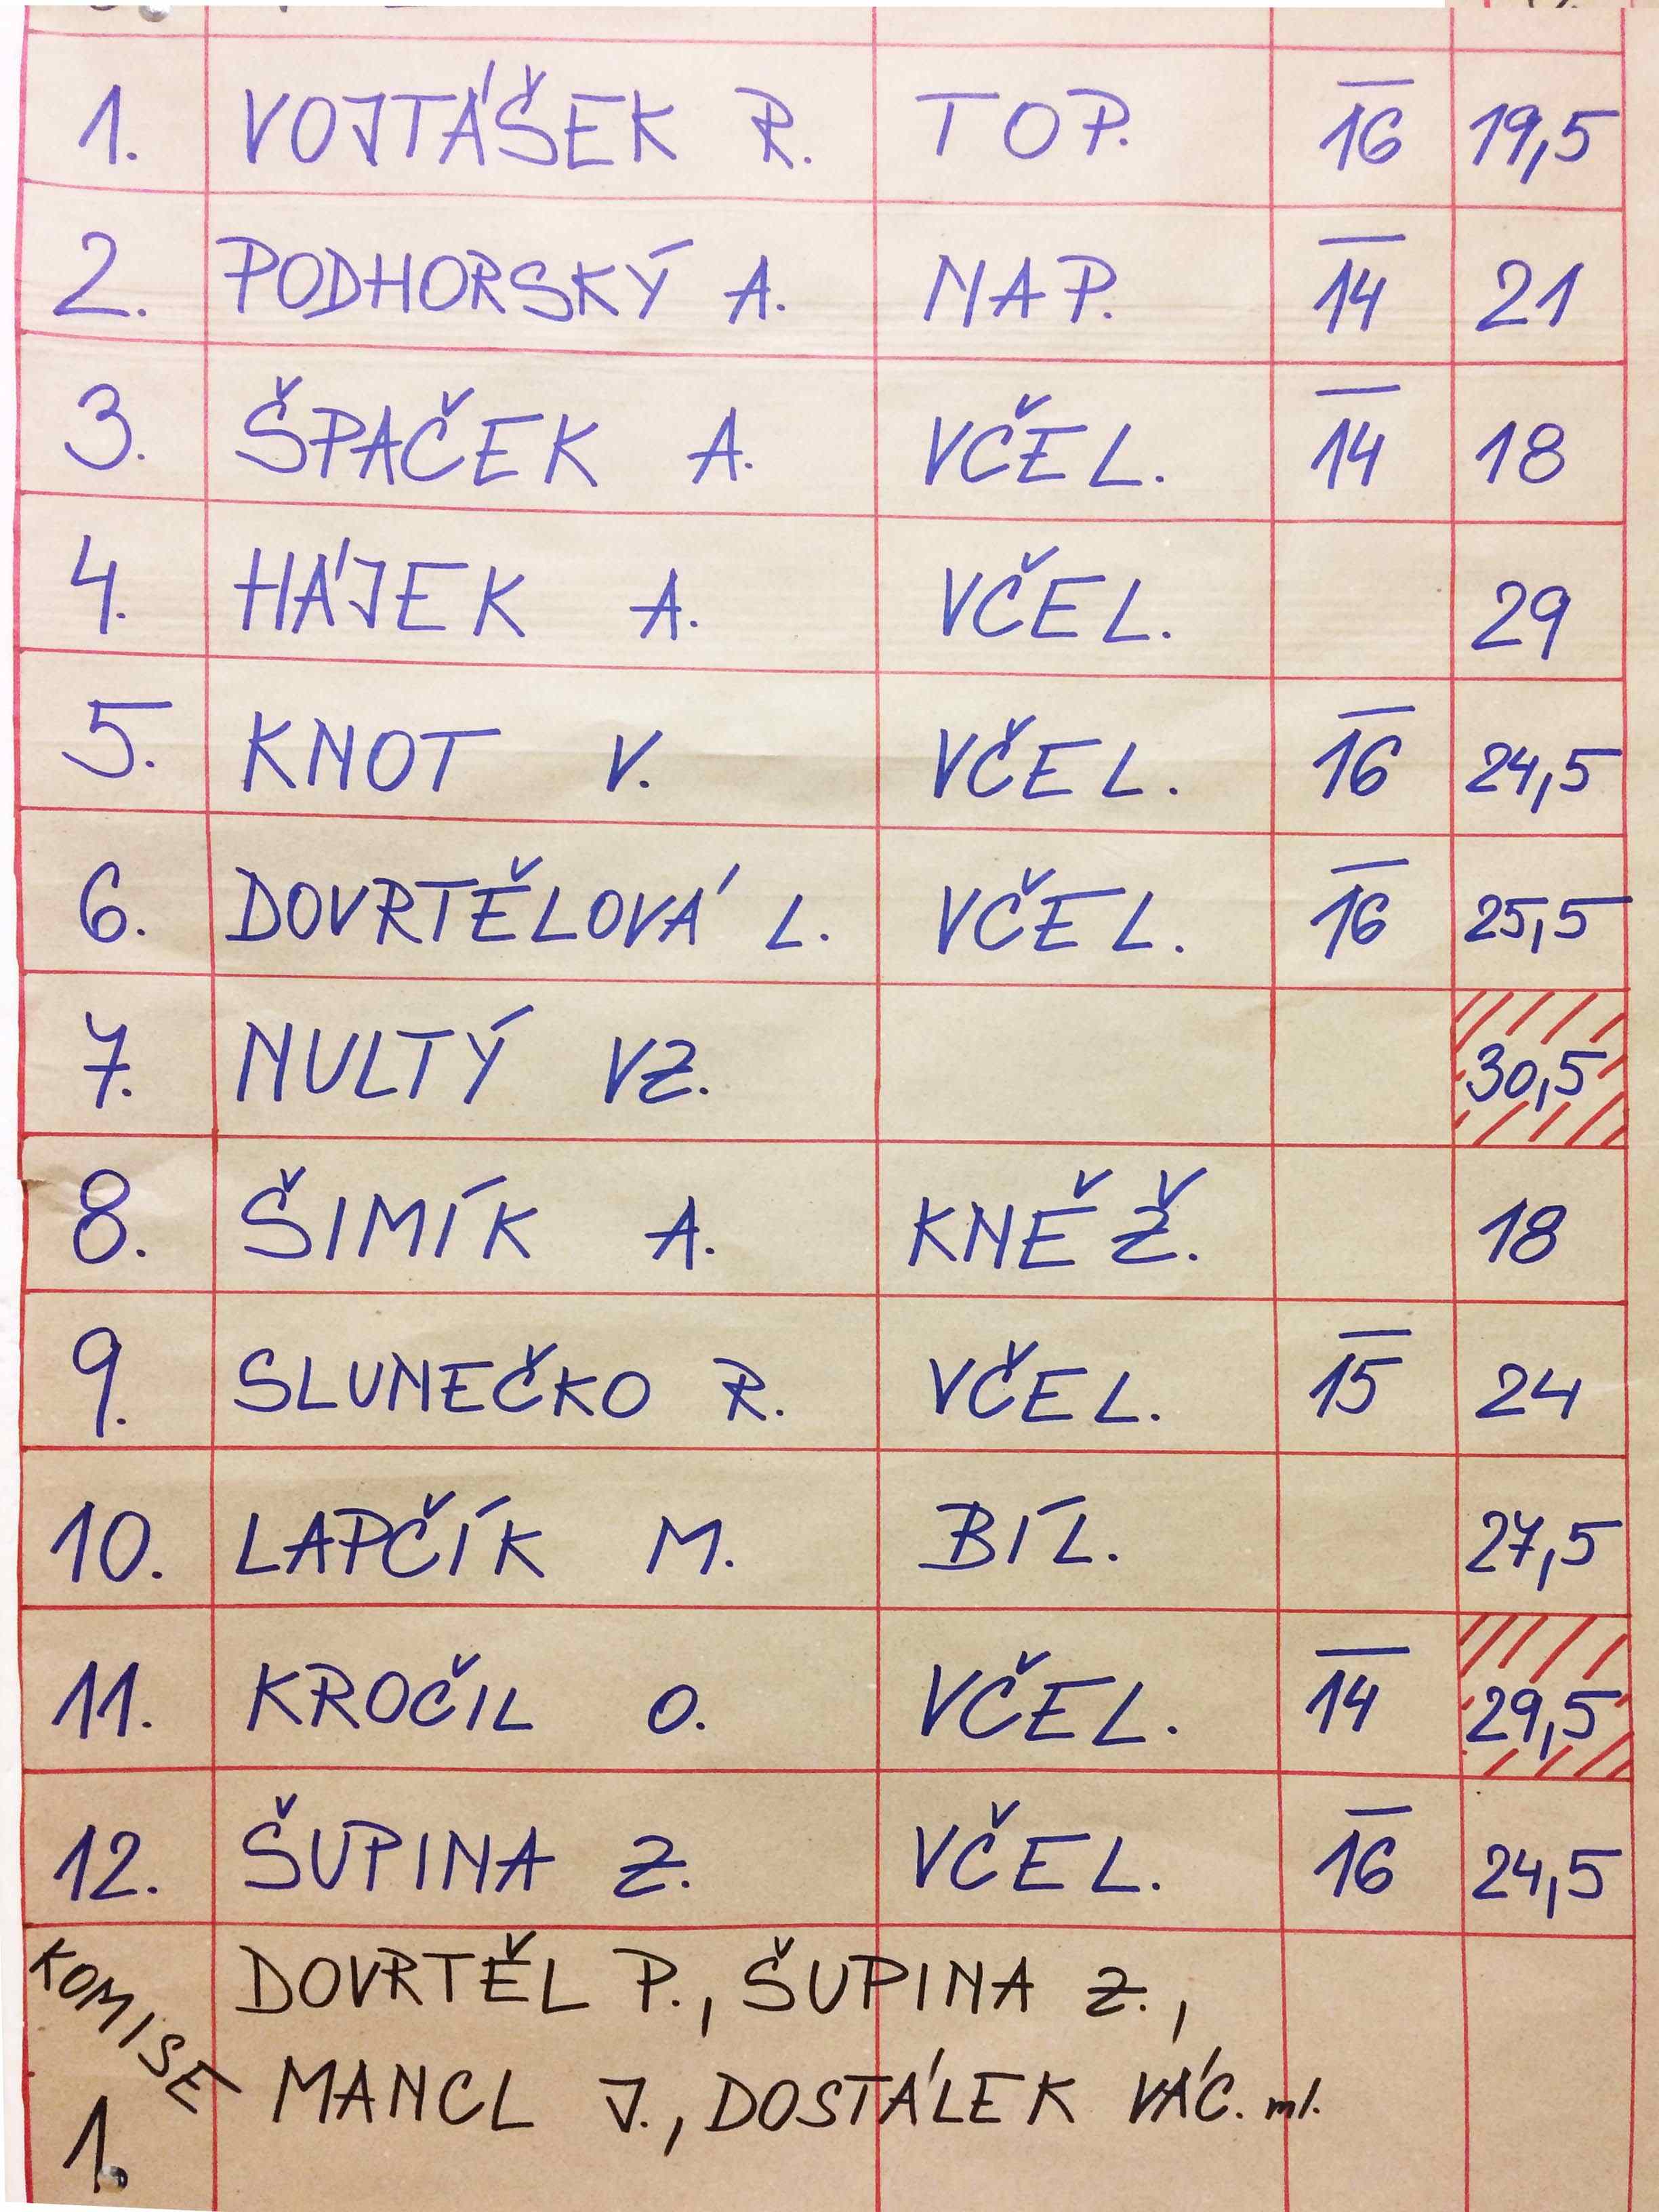 1. VOJTÁŠEK R. TOP. 16 19,5
2. PODHORSKÝ A. NAP. 14 21
3. ŠPAČEK A. VČEL. 14 18
4. HÁJEK A. VČEL. 29
5. KNOT V. VČEL. 16 24,5
6. DOVRTĚLOVÁ L. VČEL. 16 25,5
7. NULTÝ VZ. 30,5
8. ŠIMÍK A. KNĚŽ. 18
9. SLUNEČKO R. VČEL. 15 24
10. LAPČÍK M. BÍL. 27,5
11. KROČIL O. VČEL. 14 29,5
12. ŠUPINA Z. VČEL. 16 24,5
KOMISE 1. DOVRTĚL P., ŠUPINA Z.,
MANCL J., DOSTÁLEK VÁC. ml.